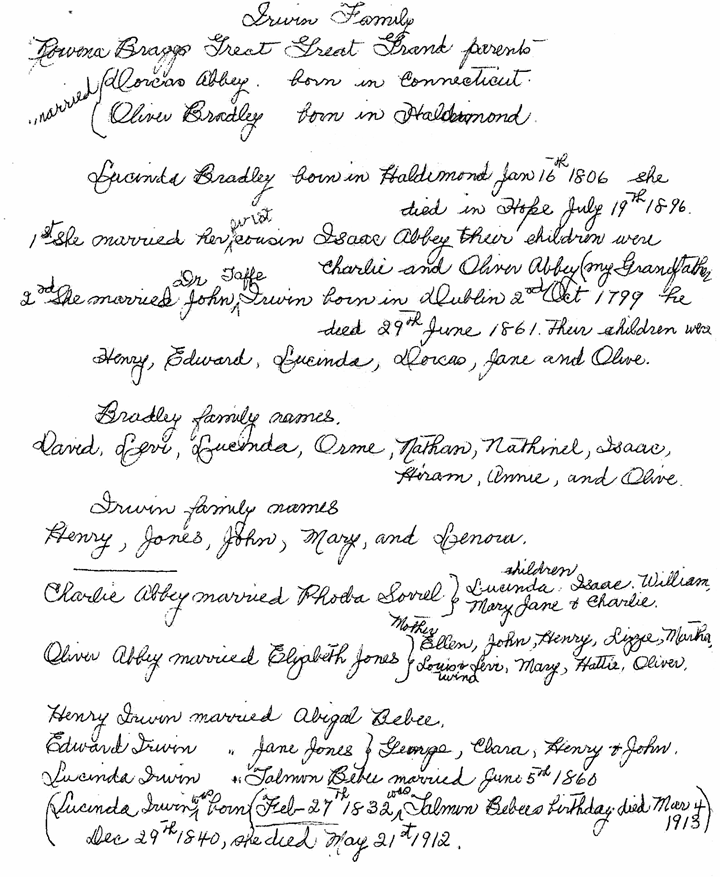 Irwin Family
Rowena Braggs Great Great Grand parents
married (Dorcas Abbey. born in Connecticut.
(Oliver Bradley born in Haldimond.
Lucinda Bradley born in Haldimond Jan 16th 1806 she
died in Hope July 19th 1896.
1st She married her first cousin Isaac Abbey their children were
Charlie and Oliver Abbey (my Grandfather
2nd She married John Dr Taffe Irwin born in Dublin 2nd Oct 1799 he
died 29th June 1861. Their children were
Henry, Edward, Lucinda, Dorcas, Jane and Olive.
Bradley family names.
David, Levi, Lucinda, Orme, Nathan, Nathinel, Isaac,
Hiram, Annie, and Olive.
Irwin family names
Henry, Jones, John, Mary, and Lenora.
Charlie Abbey married Phoba Sorrel } children Lucinda. Isaac. William,
Mary Jane & Charlie.
Oliver Abbey married Elizabeth Jones } Mother Ellen, John, Henry, Lizze, Martha,
Levi, Mary, Hattie, Oliver.
Henry Irwin married Abigal Bebee.
Edward Irwin " Jane Jones } George, Clara, Henry & John.
Lucinda Irwin " Talmon Bebee married June 5th 1860
(Lucinda Irwin was born (Feb 27th 1832 was Talmon Bebees birthday. died Mar 4 1913)
Dec 29th 1840, she died May 21st 1912.